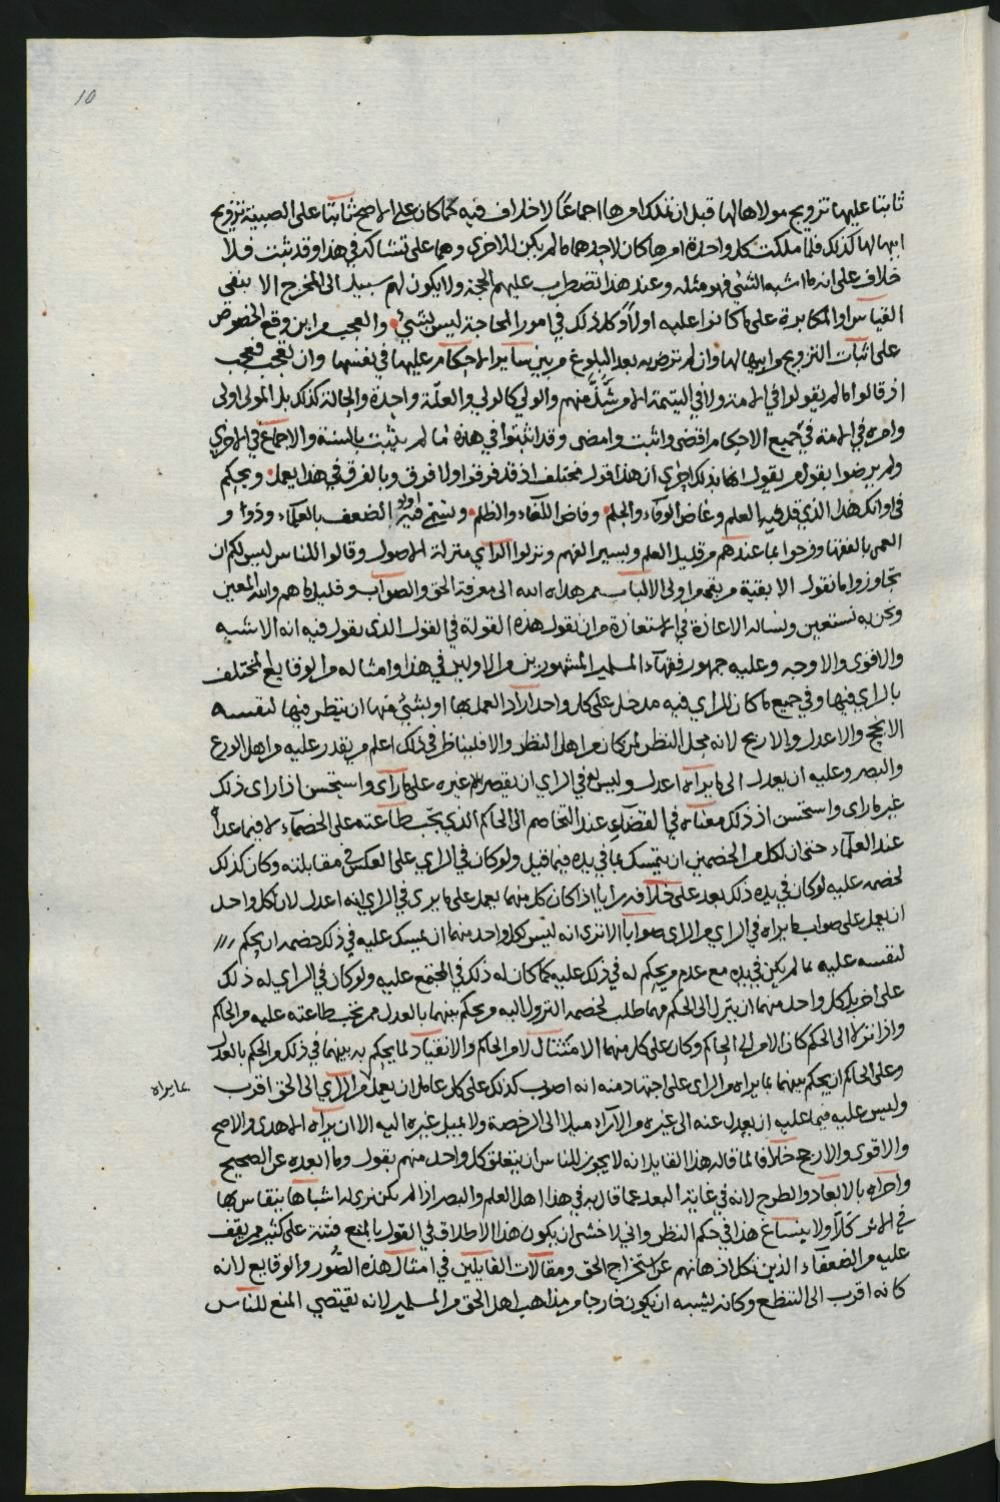 10
ثابتا عليها تزويج مولاها لها قبل ان تملك امرها اجماعا لا خلاف فيه كما كان على الاصح ثابتا على الصبية تزويج
ابيها لها كذلك فلما ملكت كل واحدة امرها كان لاحدهما ما لم يكن للاخرى وهما على تشاكله في هذا وقد ثبت فلا
خلاف على انه ما اشبه الشيء فهو مثله وعند هذا تضطرب عليهم الحجة ولا يكون لهم سبيل الى المخرج الا بنفى
القياس او المكابرة على ما كانوا عليه اولا وكل ذلك في امور المحاجة ليس بشيء والعجب من اين وقع الخصوص
على اثبات التزويج من ابيها لها وان لم ترض به بعد البلوغ من بين ساير الاحكام عليها في نفسها وان تعجب فعجب
اذ قالوا ما لم يقولوا في الامة ولا في اليتيمة الا من شذ منهم والولي كالولي والعلة واحدة والحالة كذلك بل المولى اولى
وامره في الامة في جميع الاحكام اقضى واثبت وامضى وقد اثبتوا في هذه ما لم يثبت بالسنة والاجماع في الاخرى
ولم يرضوا بقول من يقول انها بذلك احرى ان هذا قول مختلف اذ قد فرقوا ولا فرق وبالفرق في هذا يعمل ويحكم
في اوانك هذا الذي قد فيه العلم وغاض الوفاء والحلم وفاض اللغاء والظلم وتسمى فيه الضعف بالعلماء وذوا و
العمى بالفقها وفرحوا بما عندهم من قليل العلم ويسير الفهم ونزلوا الراي منزلة الاصول وقالوا للناس ليس لكم ان
تجاوزوا ما نقول الا بقية من بقي من اولى الالباب ممن هداه الله الى معرفة الحق والصواب وقليل ما هم والله المعين
ونحن به نستعين ونساله الاعاذة في الاستعاذة من ان نقول هذه القولة في القول الذي نقول فيه انه الاشبه
والاقوى والاوجه وعليه جمهور فقهاء المسلمين المشهورين من الاولين في هذا وامثاله من الوقايع المختلف
بالراي فيها وفي جميع ما كان للراي فيه مدخل على كل واحد اراد العمل بها او بشيء منها ان ينظر فيها لنفسه
الانجح والاعدل والارجح لانه محل النظر لمن كان من اهل النظر والا فليناظر في ذلك اعلم من يقدر عليه من اهل الورع
والبصر وعليه ان يعدل الى ما يراه اعدل وليس له في الراي ان يقصر غيره على ما رآى واستحسن اذا راى ذلك
غير ما راى واستحسن اذ ذلك معناه في القضاء عند التخاصم الى الحاكم الذي تجب طاعته على الخصماء لا فيما عداه
عند العلماء حتى ان لكل من الخصمين ان يتمسك بما في يده فيما قيل ولو كان في الراي على العكس في مقابلته وكان كذلك
لخصمه عليه لو كان في يده ذلك بعد على خلافه رايا اذا كان كل منهما يعمل على ما يرى في الراي انه اعدل لان لكل واحد
ان يعمل على صواب ما يراه في الراي من الاراى صوابا الا ترى انه ليس لكل واحد منهما ان يمسك عليه في ذلك خصمه ان يحكم
لنفسه عليه بما لم يكن في يده مع عدم من يحكم له في ذلك عليه كما كان له ذلك في المجتمع عليه ولو كان في الراي له ذلك
على اخر بل كل واحد منهما ان ينزل الى الحكم مهما طلب لخصمه النزول اليه من يحكم بينهما بالعدل ممن تجب طاعته عليه من الحاكم
واذا نزلا الى الحكم كان الامر الى الحاكم وكان على كل منهما الامتثال لامر الحاكم والانقياد لما يحكم به بينهما في ذلك من الحكم بالعدل
وعلى الحاكم ان يحكم بينهما بما يراه من الراى على اجتهاد منه انه اصوب كذلك على كل عامل ان يعمل من الراي الى الحق اقرب
بما يراه
وليس عليه فيما عليه ان يعدل عنه الى غيره من الآراء ميلا الى الرخصة ولا يميل غيره اليه الا ان يراه الاهدى والاصح
والاقوى والارجح خلافا لما قاله هذا القايل انه لا يجوز للناس ان يتعلق كل واحد منهم بقول وما ابعده عن الصحيح
واحراه بالابعاد والطرح لانه في غاية البعد عما قال به في هذا اهل العلم والبصر اذا لم يكن نرى له اشباها ينقاس بها
في الاثر كلا ولا ينساغ هذا في حكم النظر واني لاخشى ان يكون هذا الاطلاق في القول بالمنع فتنة على كثير ممن يقف
عليه من الضعفاء الذين تكل اذهانهم عن استخراج الحق ومقالات القايلين في امثال هذه الصور والوقايع لانه
كانه اقرب الى التنطع وكانه يشبه ان يكون خارجا من مذاهب اهل الحق من المسلمين لانه يقتضي المنع للناس